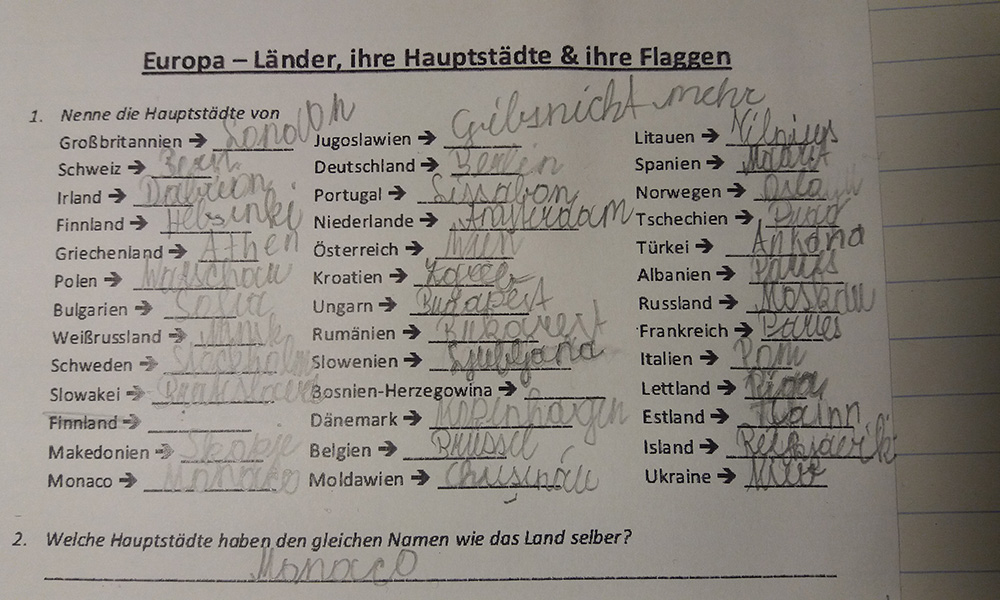 Europa – Länder, ihre Hauptstädte & ihre Flaggen
1. Nenne die Hauptstädte von
Großbritannien → London Jugoslawien → Gibsnicht mehr Litauen → Vilnius
Schweiz → Bern Deutschland → Berlin Spanien → Madrit
Irland → Portugal → Lissabon Norwegen → Oslo
Finnland → Helsinki Niederlande → Amsterdam Tschechien → Prag
Griechenland → Athen Österreich → Wien Türkei → Ankara
Polen → Warschau Kroatien → Albanien →
Bulgarien → Sofia Ungarn → Budapest Russland → Moskau
Weißrussland → Minsk Rumänien → Bukarest Frankreich →
Schweden → Stockholm Slowenien → Ljubljana Italien → Rom
Slowakei → Bosnien-Herzegowina → Lettland → Riga
Finnland → Dänemark → Kopenhagen Estland →
Makedonien → Skopje Belgien → Brüssel Island →
Monaco → Monaco Moldawien → Ukraine →
2. Welche Hauptstädte haben den gleichen Namen wie das Land selber?
Monaco